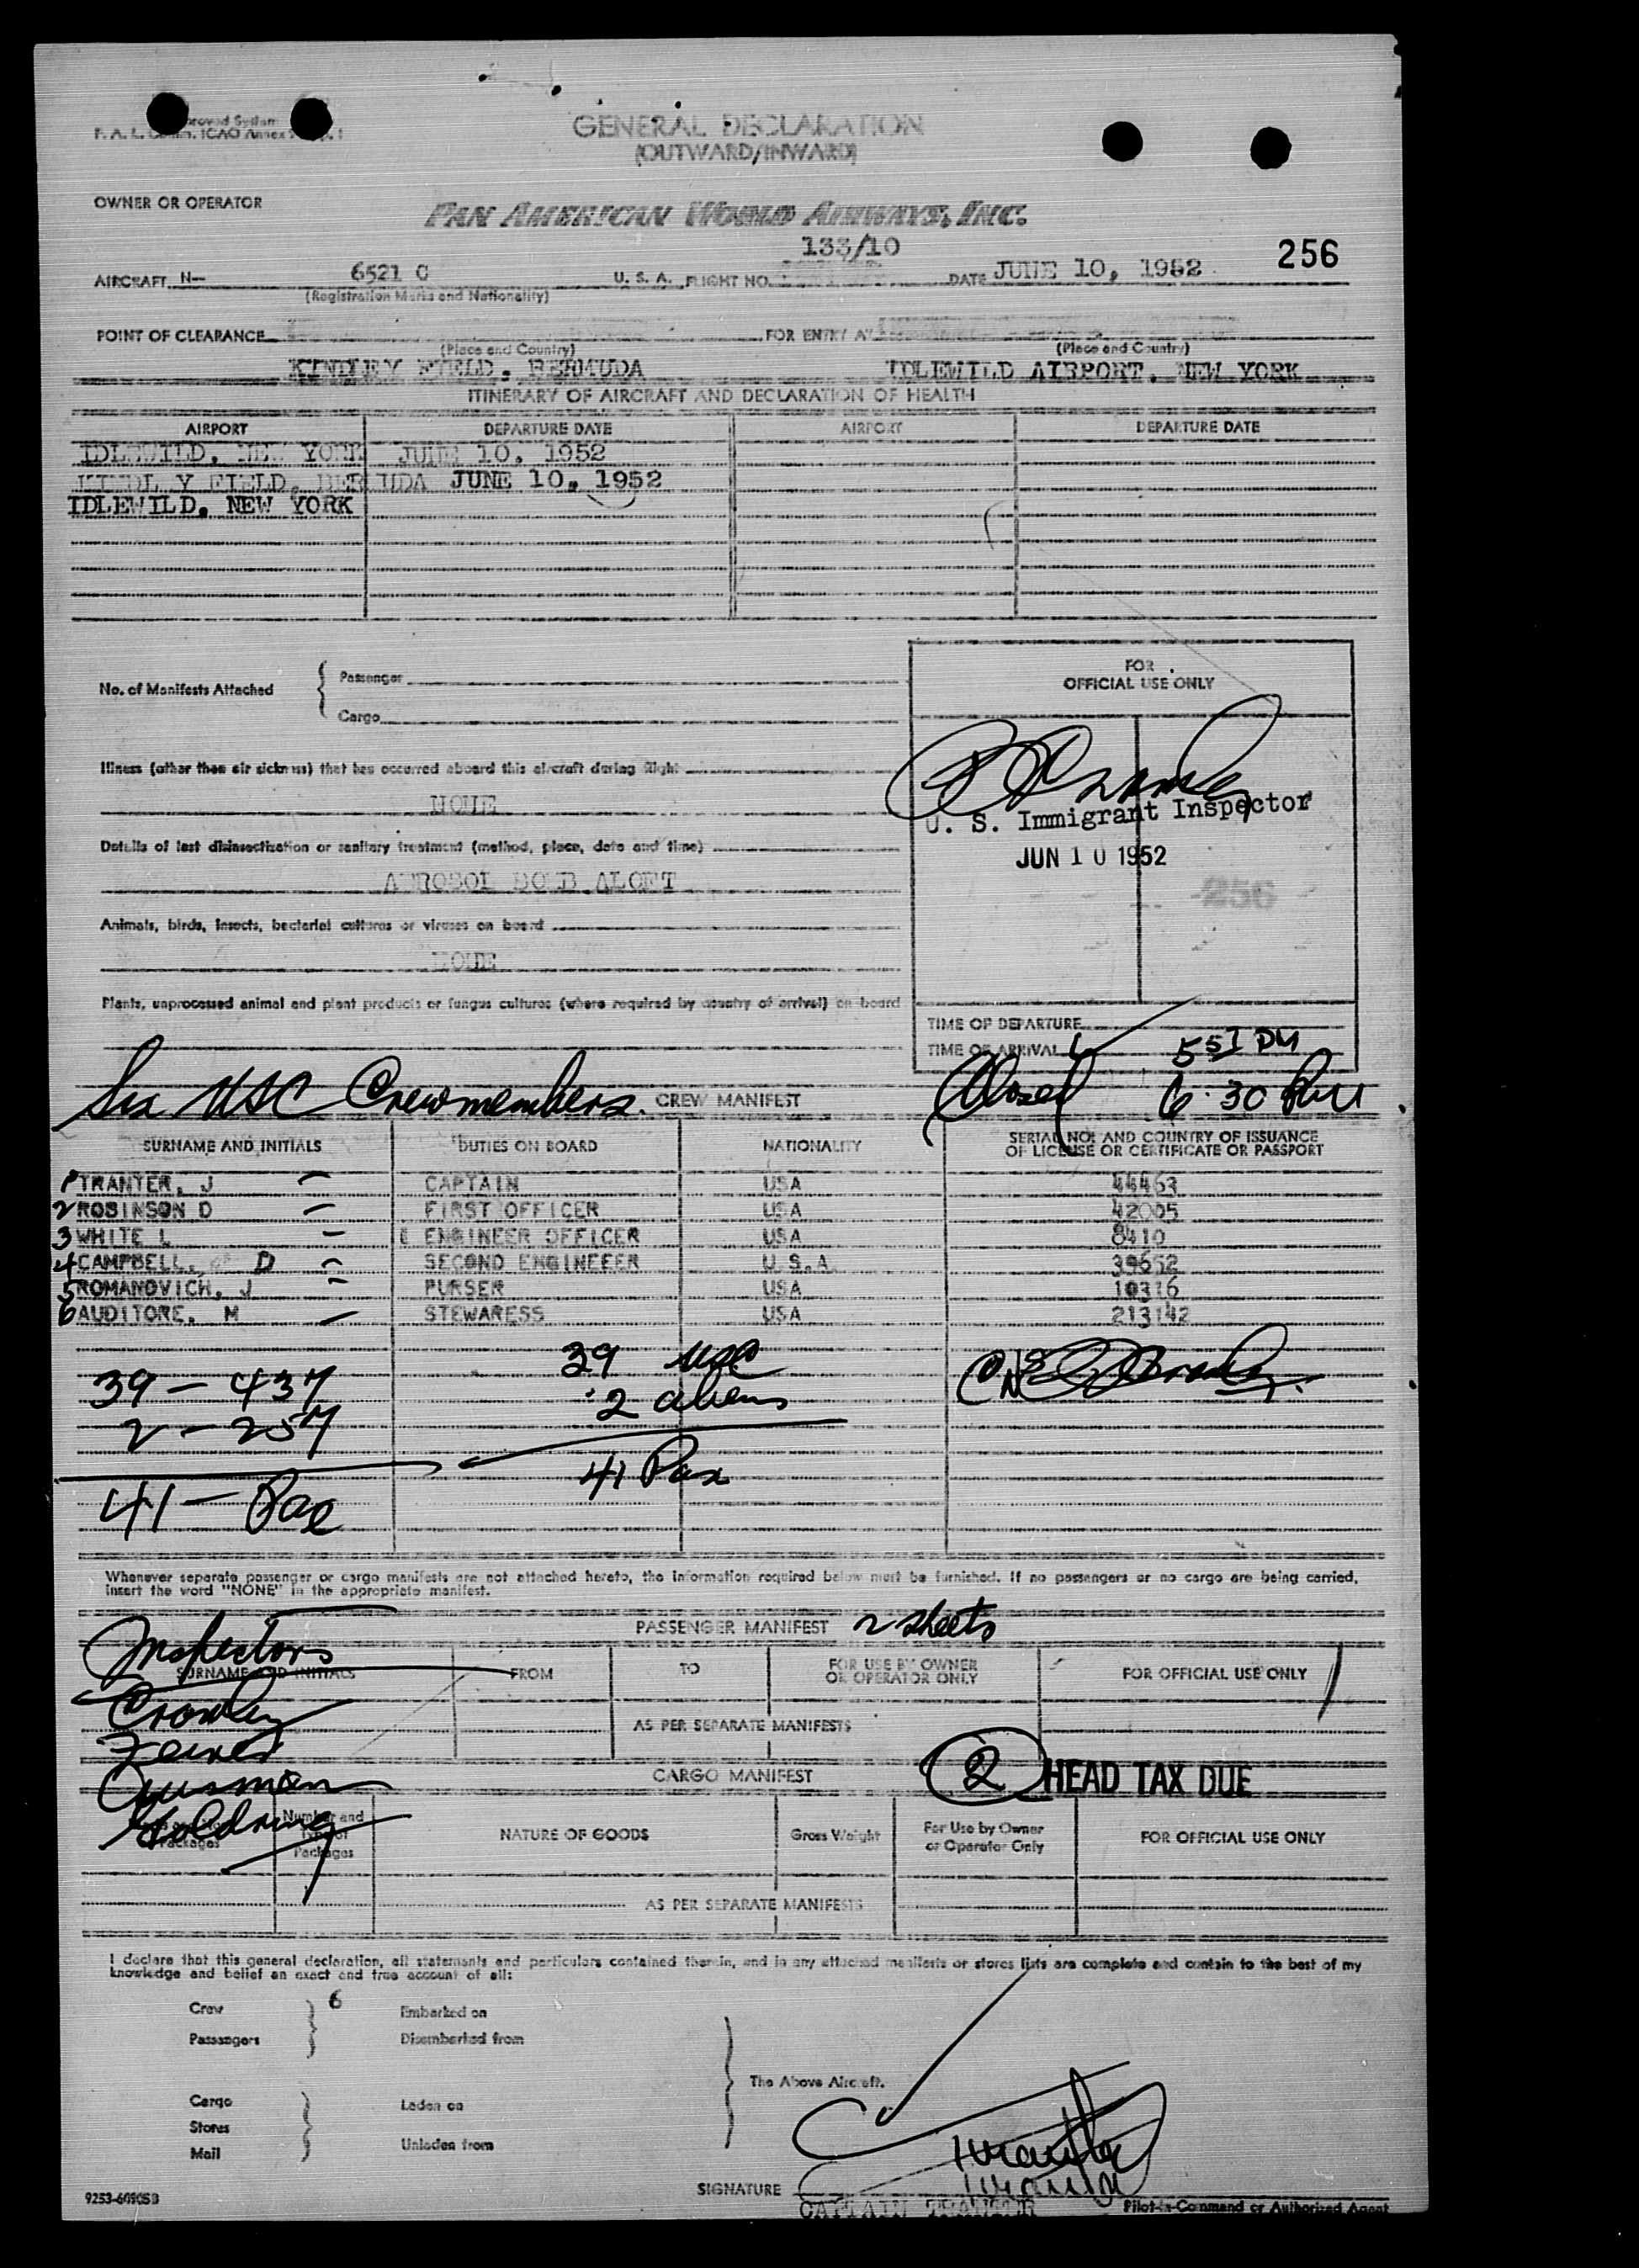 GENERAL DECLARATION
(OUTWARD/INWARD)
OWNER OR OPERATOR
PAN AMERICAN WORLD AIRWAYS, INC.
133/10
256
AIRCRAFT N- 6521 C U. S. A. FLIGHT NO. DATE JUNE 10, 1952
(Registration Marks and Nationality)
POINT OF CLEARANCE FOR ENTRY AT
(Place and Country) (Place and Country)
KINDLEY FIELD, BERMUDA IDLEWILD AIRPORT, NEW YORK
ITINERARY OF AIRCRAFT AND DECLARATION OF HEALTH
AIRPORT DEPARTURE DATE AIRPORT DEPARTURE DATE
IDLEWILD, NEW YORK JUNE 10, 1952
KINDL Y FIELD, BER UDA JUNE 10, 1952
IDLEWILD, NEW YORK
No. of Manifests Attached
Passenger
Cargo
FOR
OFFICIAL USE ONLY
Illness (other than air sickness) that has occurred aboard this aircraft during flight
NONE
U. S. Immigrant Inspector
JUN 10 1952
Details of last disinsectization or sanitary treatment (method, place, date and time)
AEROSOL BOMB ALOFT
256
Animals, birds, insects, bacterial cultures or viruses on board
NONE
Plants, unprocessed animal and plant products or fungus cultures (where required by country of arrival) on board
TIME OF DEPARTURE
TIME OF ARRIVAL 5 51 PM
Six USC Crewmembers. CREW MANIFEST Closed 6:30 PM
SURNAME AND INITIALS DUTIES ON BOARD NATIONALITY SERIAL NO. AND COUNTRY OF ISSUANCE
OF LICENSE OR CERTIFICATE OR PASSPORT
1 TRANTER, J CAPTAIN USA 44463
2 ROBINSON D FIRST OFFICER USA 42005
3 WHITE L ENGINEER OFFICER USA 8410
4 CAMPBELL, D SECOND ENGINEEER U.S.A 39652
5 ROMANOVICH, J PURSER USA 10316
6 AUDITORE, M STEWARESS USA 213142
39 usc
39 - 437
2 aliens
2 - 257
41 Pax
41 - Pax
Whenever separate passenger or cargo manifests are not attached hereto, the information required below must be furnished. If no passengers or no cargo are being carried,
insert the word "NONE" in the appropriate manifest.
PASSENGER MANIFEST 2 sheets
Inspectors
SURNAME AND INITIALS FROM TO FOR USE BY OWNER
OR OPERATOR ONLY FOR OFFICIAL USE ONLY
Crowley
AS PER SEPARATE MANIFESTS
Feiner
CARGO MANIFEST
2 HEAD TAX DUE
Gusman
Goldring
Number and
Type of
Packages
Packages
NATURE OF GOODS Gross Weight For Use by Owner
or Operator Only FOR OFFICIAL USE ONLY
AS PER SEPARATE MANIFESTS
I declare that this general declaration, all statements and particulars contained therein, and in any attached manifests or stores lists are complete and contain to the best of my
knowledge and belief an exact and true account of all:
Crew 6 Embarked on
Passengers Disembarked from
The Above Aircraft.
Cargo Laden on
Stores
Mail Unladen from
SIGNATURE
CAPTAIN TRANTER Pilot-in-Command or Authorized Agent